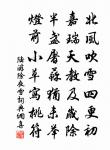 北風吹雪四更初
嘉瑞天教及歲除
半盞屠蘇猶未舉
燈前小草寫桃符
陸游除夜雪詞典網